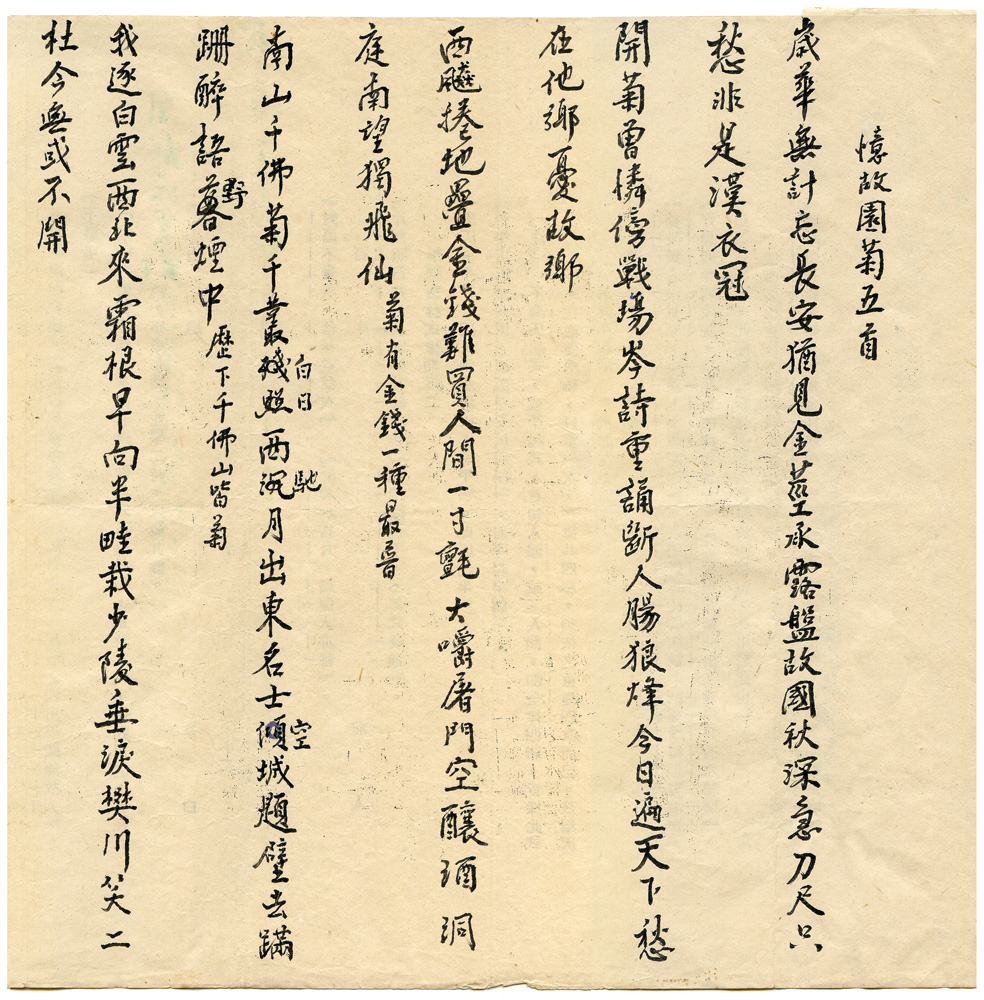 憶故園菊五首
歲華無計忘長安猶見金莖承露盤故國秋深急刀尺只
愁非是漢衣冠
開菊曾憐傍戰場岑詩重誦斷人腸狼烽今日遍天下愁
在他鄉憂故鄉
西飈捲地疊金錢難買人間一寸氈大嚼屠門空釀酒洞
庭南望獨飛仙 菊有金錢一種最普
白日 馳 空
南山千佛菊千叢殘照西沉月出東名士傾城題壁去蹣
野
跚醉語暮煙中 歷下千佛山皆菊
我逐白雲西北來霜根早向半畦栽少陵垂淚樊川笑二
杜今無或不開